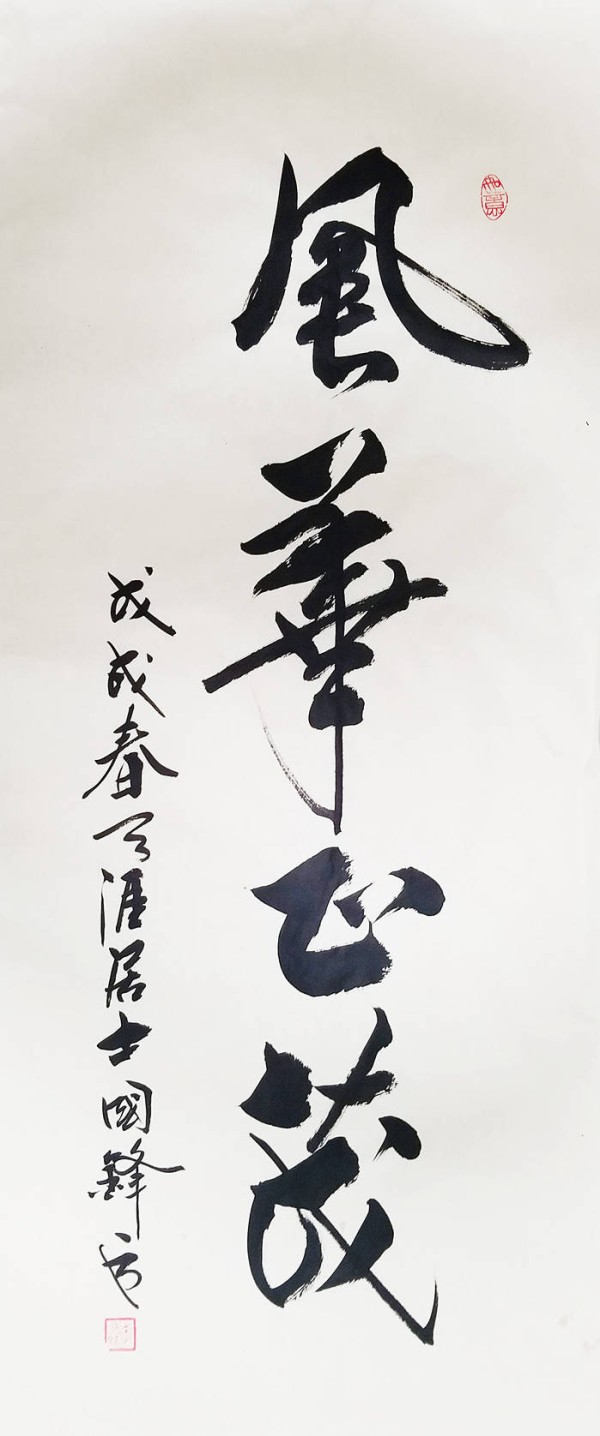 風華正茂
戊戌春天涯居士國鋒書
如意